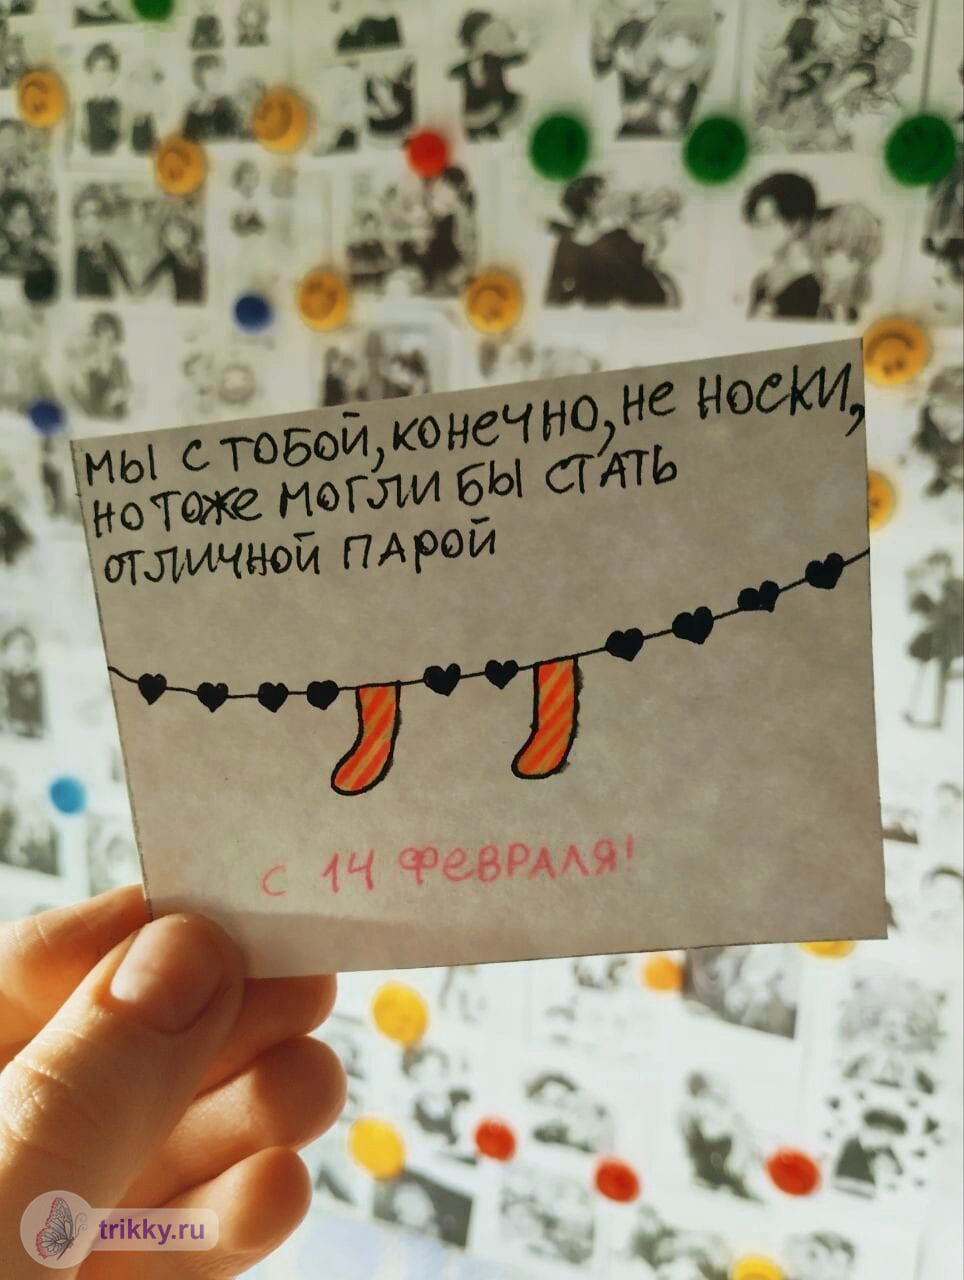 мы с тобой, конечно, не носки,
но тоже могли бы стать
отличной парой
с 14 февраля!
trikky.ru